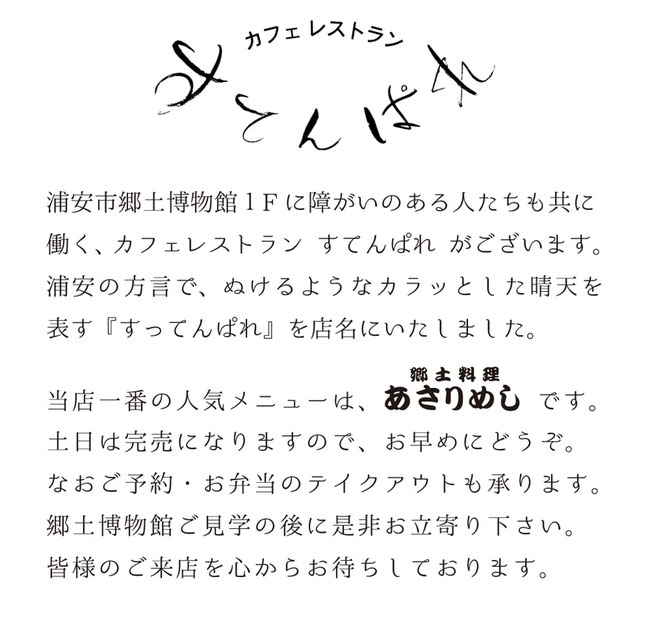 カフェレストラン
すてんぱれ
浦安市郷土博物館1Fに障がいのある人たちも共に
働く、カフェレストラン すてんぱれ がございます。
浦安の方言で、ぬけるようなカラッとした晴天を
表す『すってんぱれ』を店名にいたしました。
郷土料理
当店一番の人気メニューは、あさりめし です。
土日は完売になりますので、お早めにどうぞ。
なおご予約・お弁当のテイクアウトも承ります。
郷土博物館ご見学の後に是非お立寄り下さい。
皆様のご来店を心からお待ちしております。